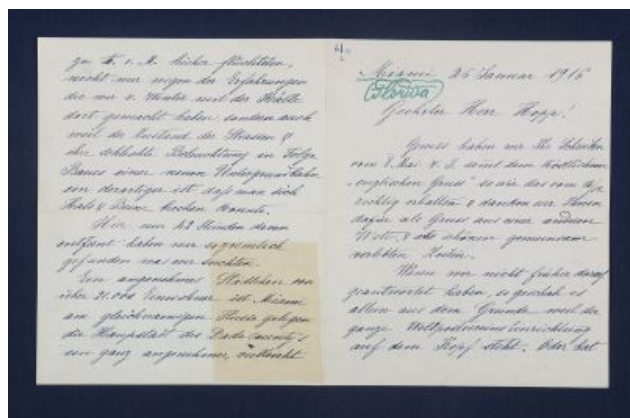 zu F. v. M. hieher flüchteten,
nicht nur wegen der Erfahrungen
die wir v. Winter mit der Kälte
dort gemacht haben sondern auch
weil der Zustand der Strassen &
ihre schlechte Beleuchtung in Folge
Baues einer neuen Untergrundbahn
ein derartiger ist, dass man sich
Hals & Beine brechen konnte.
Hier nur 42 Stunden davon
entfernt haben wir so ziemlich
gefunden was wir suchten.
Ein angenehmes Städtchen von
über 21.000 Einwohner ist Miami
am gleichnamigen gelegen
die Hauptstadt des Dade County's
ein ganz angenehmer, vielleicht
4.
Miami 25 Januar 1916
Florida
Geehrter Herr Hopp!
haben wir Ihr Schreiben
vom 8. Mai v. J. samt dem köstlichen
„englischen Gruss" sowie das vom
richtig erhalten & danken wir Ihnen
dafür als Gruss aus einer anderen
Welt, & als schönen gemeinsam
verlebten Zeiten.
Wenn wir nicht früher darauf
geantwortet haben, so geschah es
allein aus dem Grunde weil die
ganze Einrichtung
auf dem Kopf steht. Oder hat